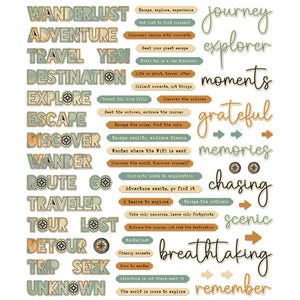 WANDERLUST
ADVENTURE
TRAVEL YES!
DESTINATION
EXPLORE
ESCAPE
DISCOVER
WANDER
ROUTE GO
TRAVELER
TOUR LOST
DETOUR
TRIP SEEK
UNKNOWN
Escape, explore, experience
Get lost to find yourself
Discovery begins with curiosity
Seek your great escape
Every day is a new discovery
Life is short, travel often
Collect moments, not things
Travel far, live fully
Discover the unknown
Seek the unknown, embrace the journey
Escape the noise, find the calm
Escape reality, embrace dreams
Wander where the WiFi is weak
Discover the world, discover yourself
Curiosity leads to exploration
Adventure awaits, go find it
A desire to explore
Escape the ordinary
Take only memories, leave only footprints
Embrace the journey, not just the destination
Wanderlust
Chasing sunsets
Born to wander
Adventure is out there—meet it
The world is yours to explore
journey
explorer
moments
grateful
memories
chasing
scenic
breathtaking
remember